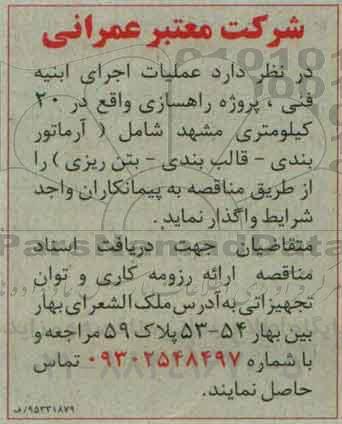 شرکت معتبر عمرانی
در نظر دارد عملیات اجرای ابنیه
فنی ، پروژه راهسازی واقع در ۲۰
کیلومتری مشهد شامل ( آرماتور
بندی - قالب بندی - بتن ریزی ) را
از طریق مناقصه به پیمانکاران واجد
شرایط واگذار نماید.
متقاضیان جهت دریافت اسناد
مناقصه ارائه رزومه کاری و توان
تجهیزاتی به آدرس ملک الشعرای بهار
بین بهار ۵۴-۵۳ پلاک ۵۹ مراجعه و
با شماره ۰۹۳۰۲۵۴۸۴۹۷ تماس
حاصل نمایند.
۹۵۳۳۱۸۷۹/ف